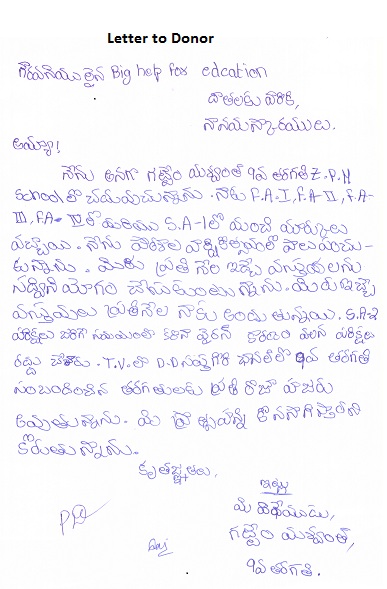 Letter to Donor
గౌరవనీయులైన Big help for edcation
దాతలకు వారికి,
నా నమస్కారములు.
అయ్యా!
నేను అనగా గట్టెం యశ్వంత్ 9వ తరగతి Z.P.H
School లో చదువుచున్నాను. నాకు F.A-I, F.A-II, F.A-
III, F.A-IV లో మరియు S.A-1లో మంచి మార్కులు
వచ్చాయి. నేను పాఠశాల వార్షికోత్సవంలో పాలు పంచు-
కున్నాను. మీరు ప్రతి నెల ఇచ్చే వస్తువులను
సద్వినియోగం చేసుకుంటున్నాను. మీరు ఇచ్చే
వస్తువులు ప్రతినెల నాకు అందుతున్నాయి. S.A-2
పరీక్షలు జరిగే సమయంలో కరోనా వైరస్ కారణం వలన పరీక్షలు
రద్దు చేశారు. T.V.లో D.D సప్తగిరి ఛానల్లో 9వ తరగతి
సంబంధించిన తరగతులకు ప్రతి రోజు హాజరు
అవుతున్నాను. మీ ప్రోత్సాహాన్ని కొనసాగిస్తారని
కోరుతున్నాను.
కృతజ్ఞతలు,
ఇట్లు
మీ విధేయుడు,
గట్టెం యశ్వంత్,
9వ తరగతి.